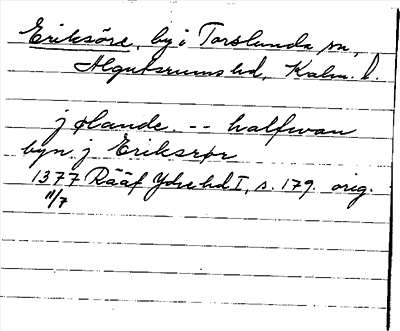 Eriksöre, by i Torslunda sn,
Algutsrums hd, Kalm. l.
j ølande. -- halfwan
byn j Eriksrør
1377 Rääf Ydre hd I, s. 179. orig.
11/7